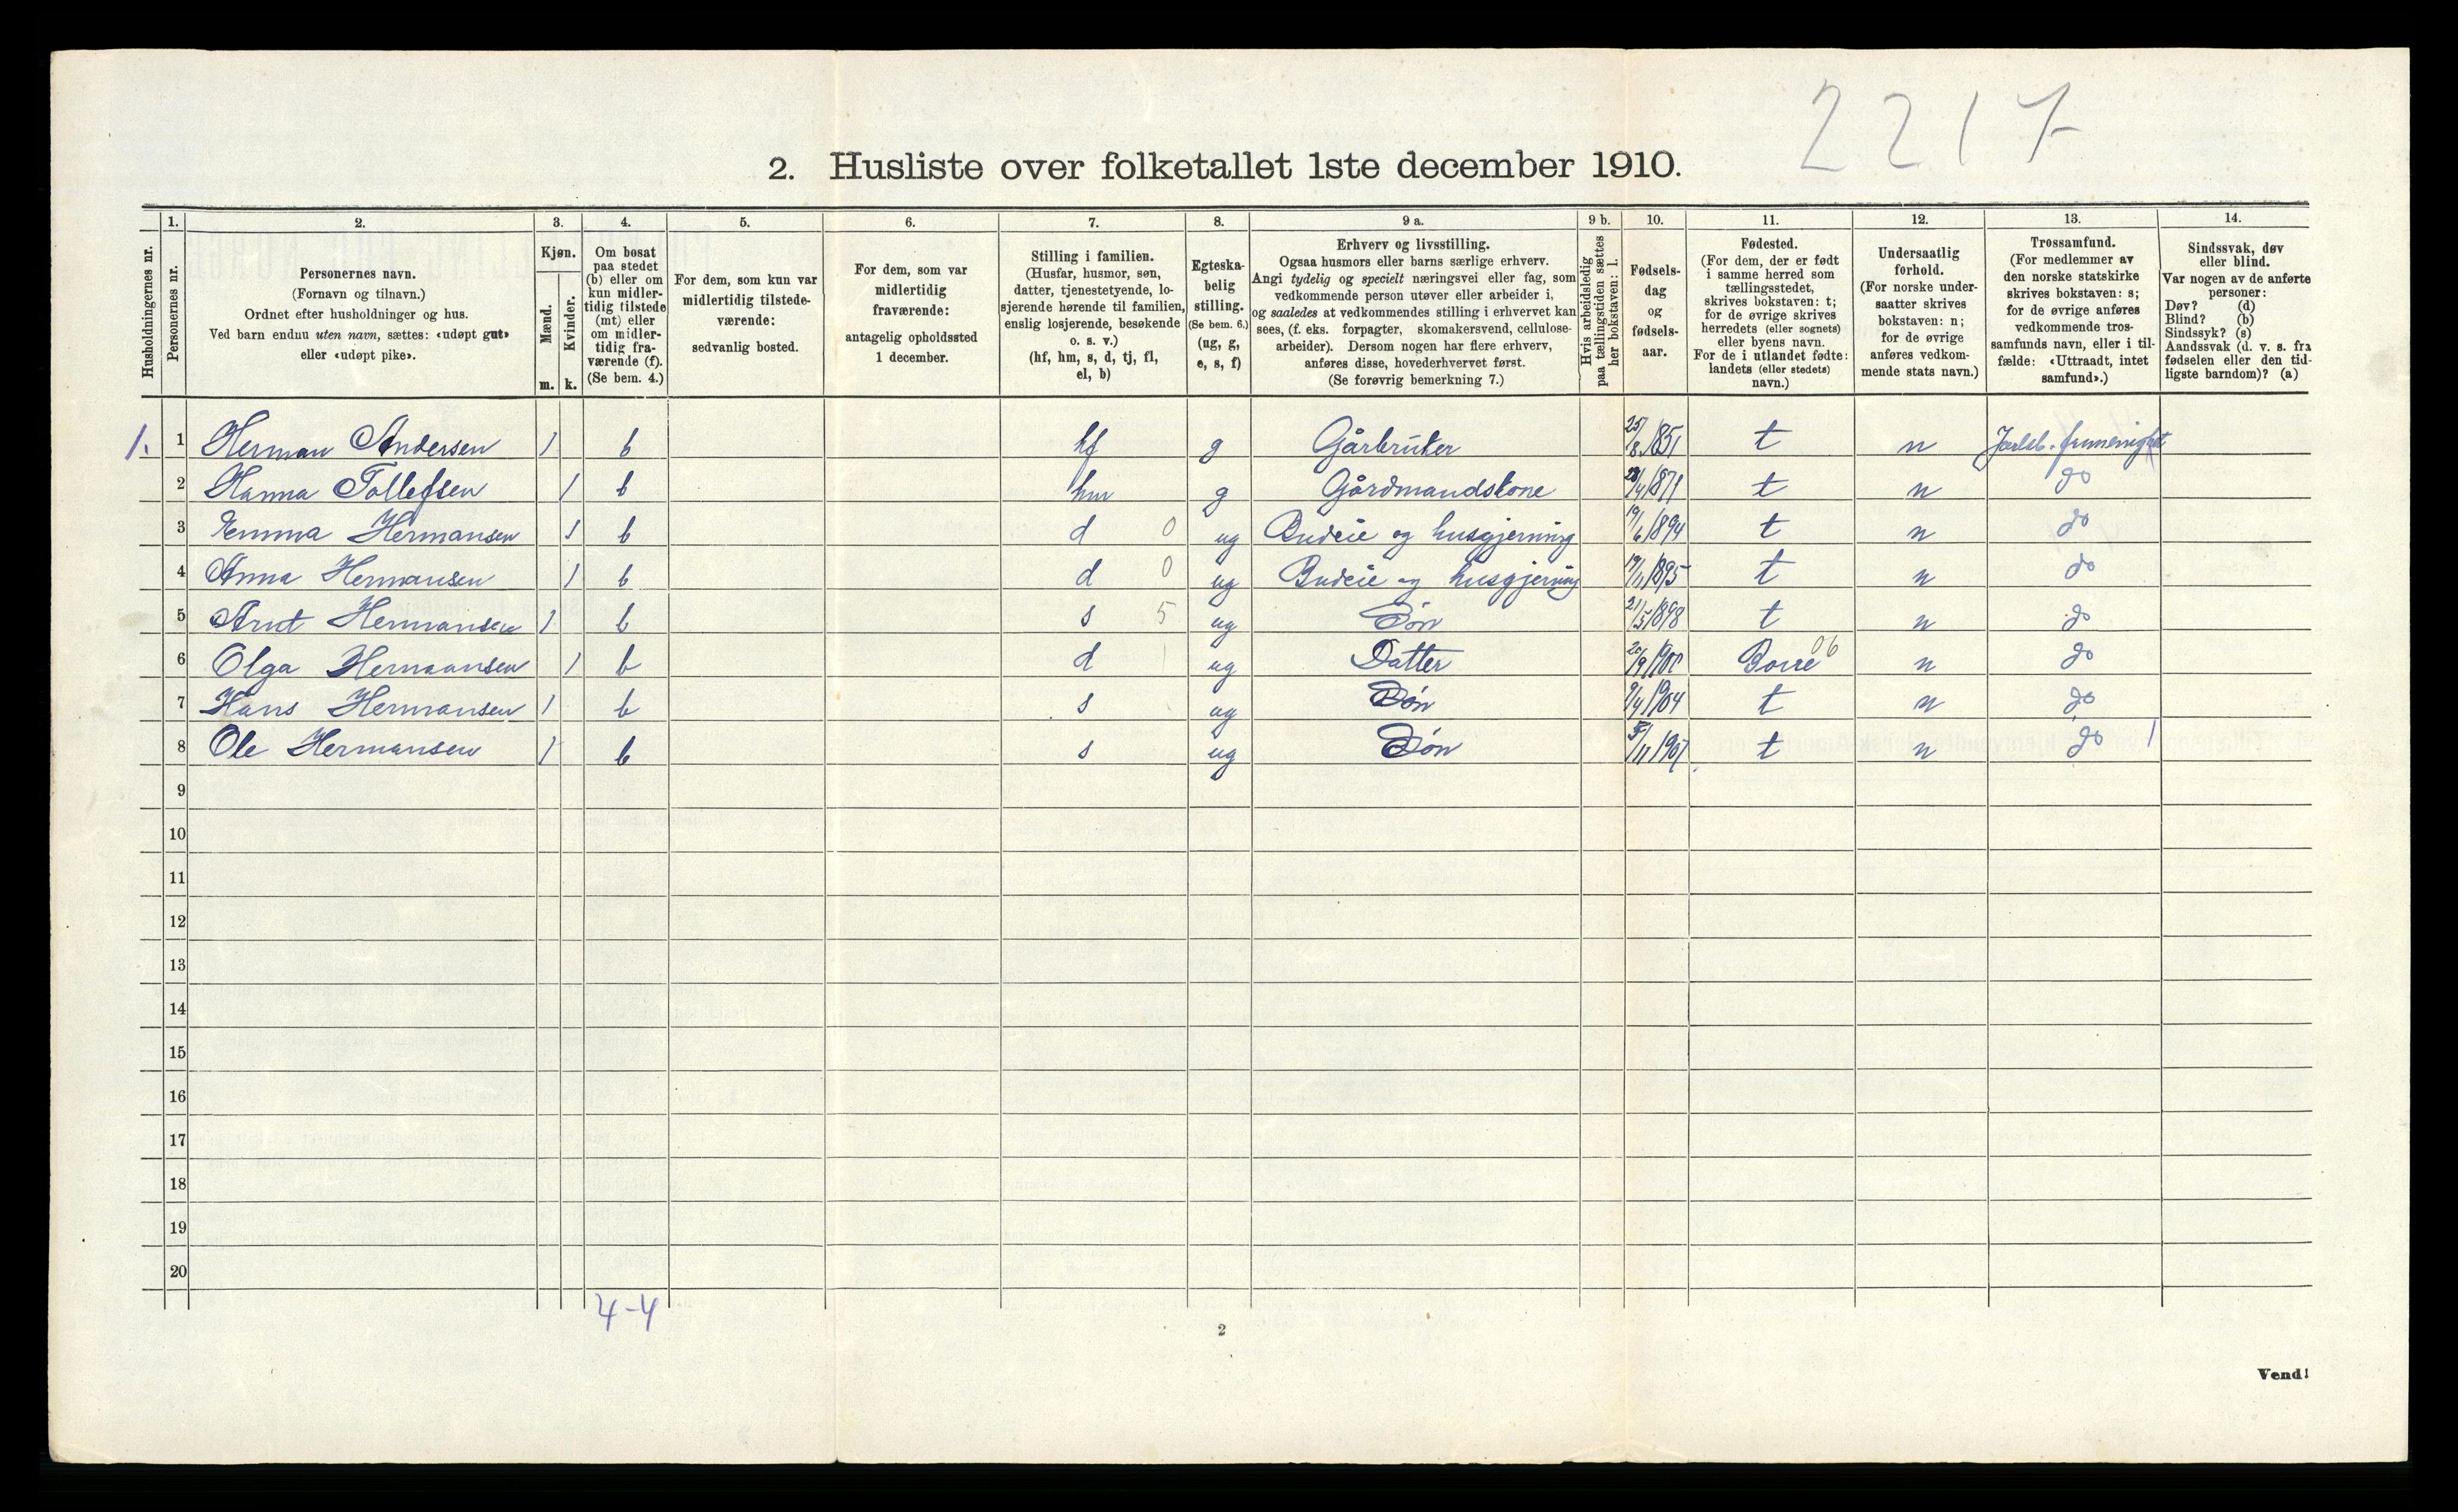 2217
2. Husliste over folketallet 1ste december 1910.
Husholdningernes nr.
1. Personernes nr.
2. Personernes navn.
(Fornavn og tilnavn.)
Ordnet efter husholdninger og hus.
Ved barn endnu uten navn, sættes: «udøpt gut»
eller «udøpt pike».
3. Kjøn.
Mænd. m.
Kvinder. k.
4. Om bosat
paa stedet
(b) eller om
kun midler-
tidig tilstede
(mt) eller
om midler-
tidig fra-
værende (f).
(Se bem. 4.)
5. For dem, som kun var
midlertidig tilstede-
værende:
sedvanlig bosted.
6. For dem, som var
midlertidig
fraværende:
antagelig opholdssted
1 december.
7. Stilling i familien.
(Husfar, husmor, søn,
datter, tjenestetyende, lo-
sjerende hørende til familien,
enslig losjerende, besøkende
o. s. v.)
(hf, hm, s, d, tj, fl,
el, b)
8. Egteska-
belig
stilling.
(Se bem. 6.)
(ug, g,
e, s, f)
9 a. Erhverv og livsstilling.
Ogsaa husmors eller barns særlige erhverv.
Angi tydelig og specielt næringsvei eller fag, som
vedkommende person utøver eller arbeider i,
og saaledes at vedkommendes stilling i erhvervet kan
sees, (f. eks. forpagter, skomakersvend, cellulose-
arbeider). Dersom nogen har flere erhverv,
anføres disse, hovederhvervet først.
(Se forøvrig bemerkning 7.)
9 b. Hvis arbeidsledig
paa tællingstiden sættes
her bokstaven: l.
10. Fødsels-
dag
og
fødsels-
aar.
11. Fødested.
(For dem, der er født
i samme herred som
tællingsstedet,
skrives bokstaven: t;
for de øvrige skrives
herredets (eller sognets)
eller byens navn.
For de i utlandet fødte:
landets (eller stedets)
navn.)
12. Undersaatlig
forhold.
(For norske under-
saatter skrives
bokstaven: n;
for de øvrige
anføres vedkom-
mende stats navn.)
13. Trossamfund.
(For medlemmer av
den norske statskirke
skrives bokstaven: s;
for de øvrige anføres
vedkommende tros-
samfunds navn, eller i til-
fælde: «Uttraadt, intet
samfund».)
14. Sindssvak, døv
eller blind.
Var nogen av de anførte
personer:
Døv? (d)
Blind? (b)
Sindssyk? (s)
Aandssvak (d. v. s. fra
fødselen eller den tid-
ligste barndom)? (a)
1. 1 Herman Andersen 1 b hf g Gårbruker 25/8 1851 t n Jarlsb.
2 Hanna Tollefsen 1 b hm g Gårdmandskone /4 1871 t n do
3 Emma Hermansen 1 b d 0 ug Budeie og husgjerning 19/6 1894 t n do
4 Anna Hermansen 1 b d 0 ug Budeie og husgjerning 1895 t n do
5 Arnt Hermansen 1 b s 5 ug Søn 21/5 1898 t n do
6 Olga Hermansen 1 b d 1 ug Datter 20/9 1900 Borre 06 n do
7 Hans Hermansen 1 b s ug Søn 9/4 1904 t n do
8 Ole Hermansen 1 b s ug Søn /11 1907 t n do 1
9
10
11
12
13
14
15
16
17
18
19
20
4-4
2
Vend!